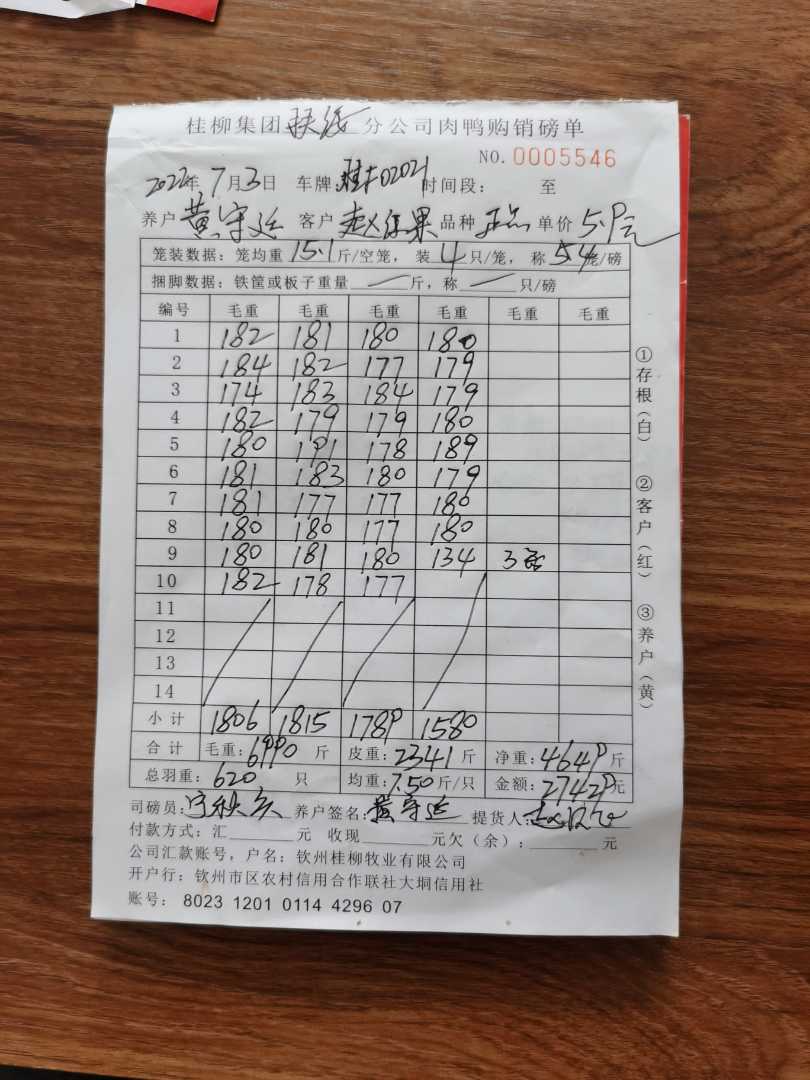 桂柳集团扶绥分公司肉鸭购销磅单
NO. 0005546
2022年 7月3日 车牌: 桂F02021 时间段: 至
养户 黄守延 客户 赵红果 品种 正品 单价 5.9元
笼装数据: 笼均重 15.1 斤/空笼, 装 4 只/笼, 称 5.4笼/磅
捆脚数据: 铁筐或板子重量 — 斤, 称 — 只/磅
编号 毛重 毛重 毛重 毛重 毛重 毛重
1 182 181 180 180
2 184 182 177 179
3 174 183 184 179
4 182 179 179 180
5 180 191 178 189
6 181 183 180 179
7 181 177 177 180
8 180 180 177 180
9 180 181 180 134 3
10 182 178 177
11
12
13
14
小计 1806 1815 1789 1580
合计 毛重: 6990 斤 皮重: 2341 斤 净重: 4649 斤
总羽重: 620 只 均重: 7.50 斤/只 金额: 27429元
司磅员: 养户签名: 黄守延 提货人:
付款方式: 汇 元 收现 元欠(余): 元
公司汇款账号, 户名: 钦州桂柳牧业有限公司
开户行: 钦州市区农村信用合作联社大垌信用社
账号: 8023 1201 0114 4296 07
①存根(白) ②客户(红) ③养户(黄)